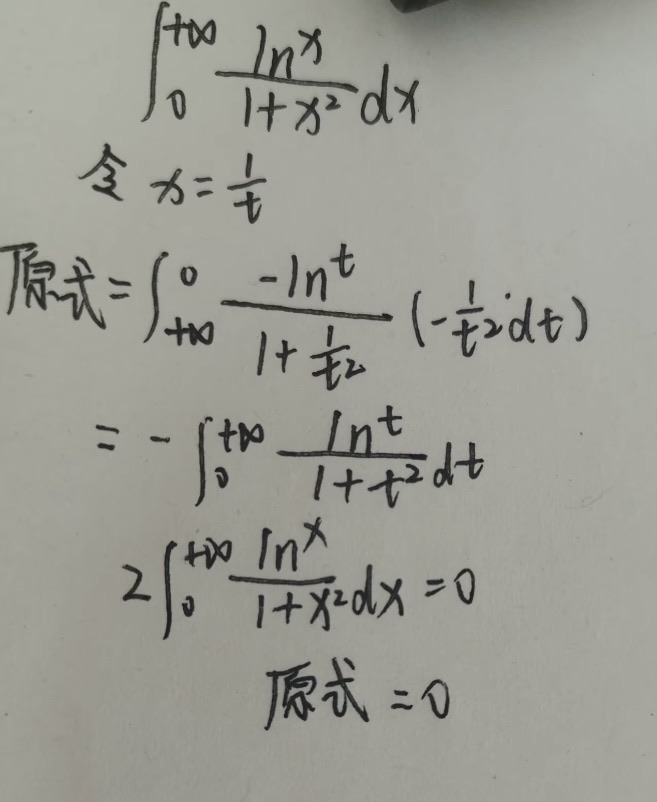 ∫₀^{+∞} ln x / (1+x²) dx
令 x = 1/t
原式 = ∫_{+∞}^{0} -ln t / (1 + 1/t²) (-1/t² dt)
= -∫₀^{+∞} ln t / (1+t²) dt
2∫₀^{+∞} ln x / (1+x²) dx = 0
原式 = 0